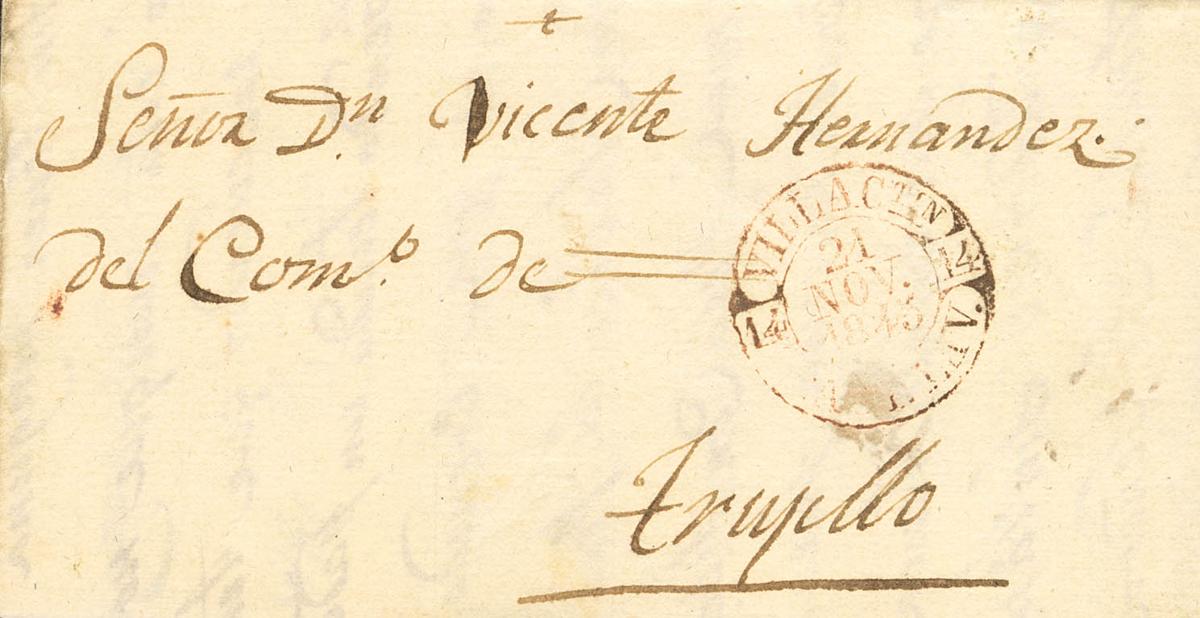 Señor Dn. Vicente Hernandez.
del Com.o de
VILLACTIN
14
21
NOV.
1845
14
Trujillo